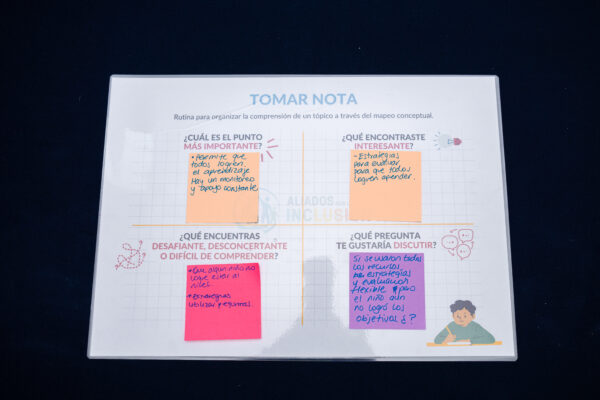 TOMAR NOTA
Rutina para organizar la comprensión de un tópico a través del mapeo conceptual.
¿CUÁL ES EL PUNTO
MÁS IMPORTANTE?
• Permite que
todos logren
el aprendizaje
Hay un monitoreo
y apoyo constante
¿QUÉ ENCONTRASTE
INTERESANTE?
- Estrategias
para evaluar
para que todos
logren aprender.
ALIADOS
INCLUSI
¿QUÉ ENCUENTRAS
DESAFIANTE, DESCONCERTANTE
O DIFÍCIL DE COMPRENDER?
• Que algun niño no
logre estar al
nivel
• Estrategias
utilizar
¿QUÉ PREGUNTA
TE GUSTARÍA DISCUTIR?
Si se usaron todos
los recursos,
estrategias
y evaluación
flexible pero
el niño aún
no logró los
objetivos ¿?